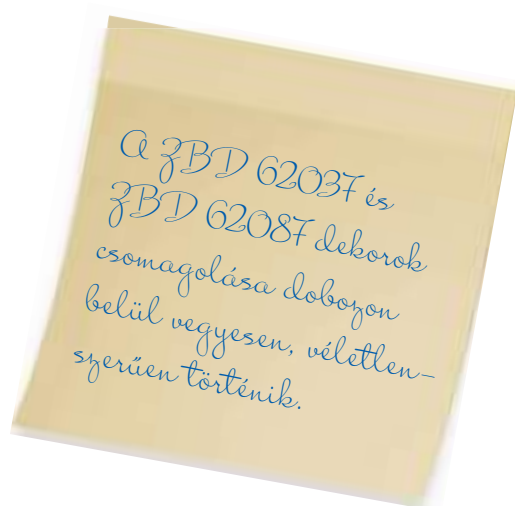 A ZBD 62037 és
ZBD 62087 dekorok
csomagolása dobozon
belül vegyesen, véletlen-
szerűen történik.